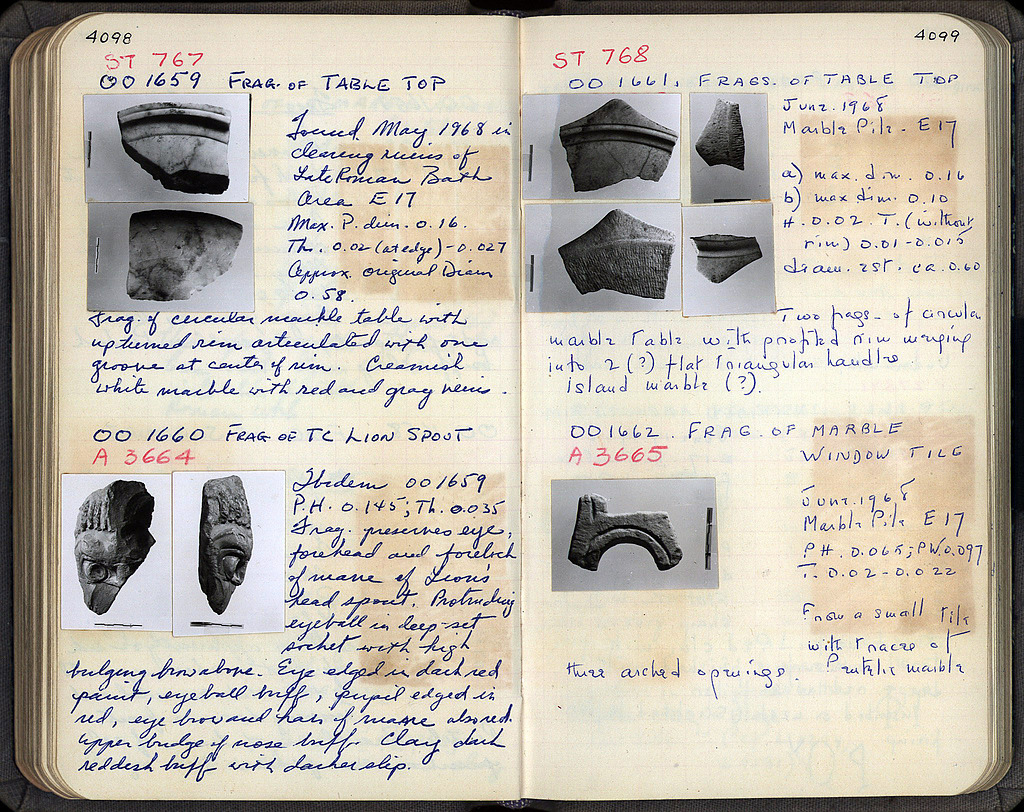 4098
ST 767
OO 1659 FRAG. OF TABLE TOP
Found May 1968 in
clearing ruins of
Late Roman Bath
Area E 17
Max. P. dim. 0.16.
Th. 0.02 (at edge) - 0.027
Approx. original Diam
0.58.
Frag. of circular marble table with
upturned rim articulated with one
groove at center of rim. Creamish
white marble with red and gray veins.
OO 1660 FRAG OF TC LION SPOUT
A 3664
Ibidem OO 1659
P.H. 0.145; Th. 0.035
Frag. preserves eye,
forehead and forelock
of mane of Lion's
head spout. Protruding
eyeball in deep-set
socket with high
bulging brow above. Eye edged in dark red
paint, eyeball buff, pupil edged in
red, eye brow and hair of mane also red.
upper bridge of nose buff. Clay dark
reddish buff with darker slip.
4099
ST 768
OO 1661, FRAGS. OF TABLE TOP
June. 1968
Marble Pile - E 17
a) max. dim. 0.16
b) max dim. 0.10
H. 0.02. T. (without
rim) 0.01-0.015
diam. est. ca. 0.60
Two frags. of circular
marble table with profiled rim merging
into 2 (?) flat triangular handles.
island marble (?).
OO 1662. FRAG. OF MARBLE
A 3665
WINDOW TILE
June. 1968
Marble Pile E 17
PH. 0.065; PW. 0.097
T. 0.02-0.022
From a small tile
with traces of
three arched openings. Pentelic marble